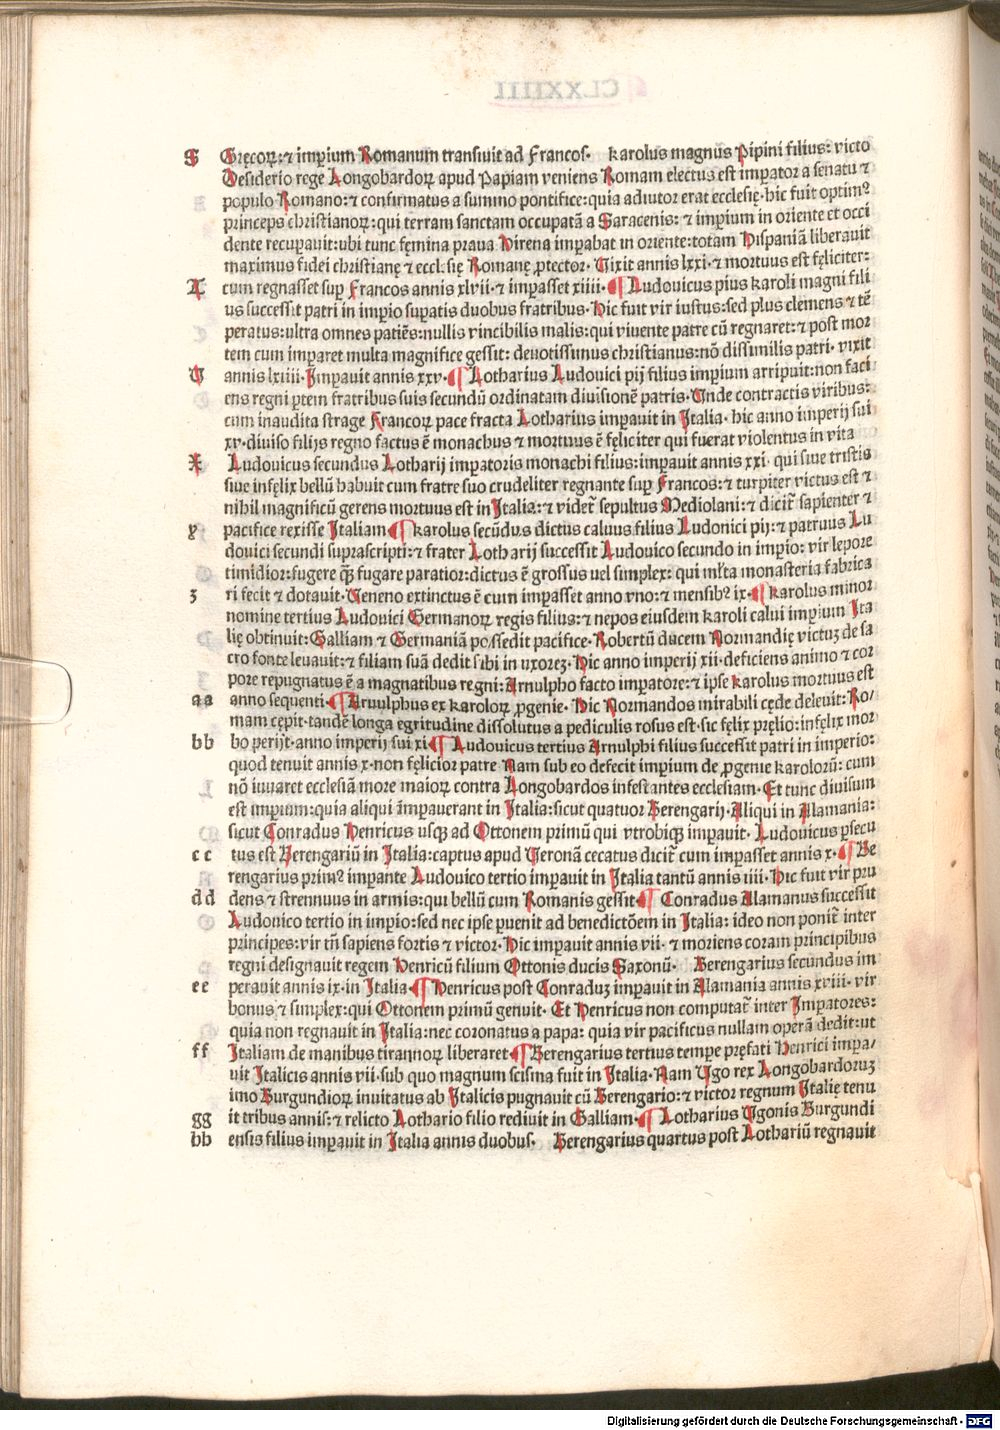 S Gręcoꝝ: ⁊ imꝑium Romanum transiuit ad Francos. Karolus magnus Pipini filius: victo
Desiderio rege Longobardoꝝ apud Papiam veniens Romam electus est imꝑator a senatu ⁊
populo Romano: ⁊ confirmatus a summo pontifice: quia adiutor erat ecclesię. hic fuit optimꝰ
princeps christianoꝝ: qui terram sanctam occupatā a Saracenis: ⁊ imꝑium in oriente et occi
dente recuꝑauit: ubi tunc fęmina praua Hirena imꝑabat in oriente: totam Hispaniā liberauit
maximus fidei christianę ⁊ ecclesię Romanę ꝓtector. Vixit annis lxxi. ⁊ mortuus est fęliciter:
T cum regnasset suꝑ Francos annis xlvii. ⁊ imꝑasset xiiii. ¶ Ludouicus pius Karoli magni fili
us successit patri in imꝑio suꝑatis duobus fratribus. Hic fuit vir iustus: sed plus clemens ⁊ tē
peratus: ultra omnes patiēs: nullis vincibilis malis: qui vivente patre cū regnaret: ⁊ post mor
tem cum imꝑaret multa magnifice gessit: deuotissimus christianus: nō dissimilis patri. vixit
V annis lxiiii. Imꝑauit annis xxv. ¶ Lotharius Ludouici pij filius imꝑium arripuit: non faci
ens regni ꝑtem fratribus suis secundū ordinatam diuisionē patris. Vnde contractis viribus:
cum inaudita strage Francoꝝ pace fracta Lotharius imꝑauit in Italia. hic anno imperij sui
xv. diuiso filijs regno factus ē monachus ⁊ mortuus ē fęliciter qui fuerat violentus in vita
X Ludouicus secundus Lotharij imꝑatoris monachi filius: imꝑauit annis xxi. qui siue tristis
siue infęlix bellū habuit cum fratre suo crudeliter regnante suꝑ Francos: ⁊ turpiter victus est ⁊
nihil magnificū gerens mortuus est in Italia: ⁊ videt̄ sepultus Mediolani: ⁊ dicit̄ sapienter ⁊
y pacifice rexisse Italiam ¶ Karolus secūdus dictus caluus filius Ludouici pij: ⁊ patruus Lu
douici secundi suprascripti: ⁊ frater Lotharij successit Ludouico secundo in imꝑio: vir lepore
timidior: fugere q̄ꝫ fugare paratior: dictus ē grossus uel simplex: qui mꝉta monasteria fabrica
z ri fecit ⁊ dotauit. Veneno extinctus ē cum imꝑasset anno vno: ⁊ mensibꝰ ix. ¶ Karolus minor
nomine tertius Ludouici Germanoꝝ regis filius: ⁊ nepos eiusdem Karoli calui imꝑium Ita
lię obtinuit: Galliam ⁊ Germaniā possedit pacifice. Robertū ducem Normandię victuꝫ de sa
cro fonte leuauit: ⁊ filiam suā dedit sibi in uxoreꝫ. Hic anno imperij xii. deficiens animo ⁊ cor
pore repugnatus ē a magnatibus regni: Arnulpho facto imperatore: ⁊ ipse Karolus mortuus est
aa anno sequenti. ¶ Aruulphus ex Karoloꝝ ꝓgenie. Hic Normandos mirabili cęde deleuit: Ro/
mam cępit. tandē longa egritudine dissolutus a pediculis rosus est. sic fęlix pręlio: infęlix mor
bb bo perijt. anno imperij sui xi ¶ Ludouicus tertius Arnulphi filius successit patri in imperio:
quod tenuit annis x. non fęlicior patre Nam sub eo defecit imꝑium de ꝓgenie Karolorū: cum
nō iuuaret ecclesiā more maioꝝ contra Longobardos infestantes ecclesiam. Et tunc diuisum
est imꝑium: quia aliqui īmpauerant in Italia: sicut quatuor Berengarij. Aliqui in Alamania:
sicut Conradus Henricus usqꝫ ad Ottonem primū qui vtrobiqꝫ imꝑauit. Ludouicus ꝑsecu
cc tus est Berengariū in Italia: captus apud Veronā cecatus dicit̄ cum imꝑasset annis x. ¶ Be
rengarius primꝰ imꝑante Ludouico tertio imꝑauit in Italia tantū annis iiii. Hic fuit vir pru
dd dens ⁊ strennuus in armis: qui bellū cum Romanis gessit ¶ Conradus Alamanus successit
Ludouico tertio in imꝑio: sed nec ipse ꝑuenit ad benedictōem in Italia: ideo non ponit̄ inter
principes: vir tn̄ sapiens fortis ⁊ victor. Hic imꝑauit annis vii. ⁊ moriens coram principibus
regni designauit regem Henricū filium Ottonis ducis Saxonū. Berengarius secundus im
ee perauit annis ix. in Italia ¶ Henricus post Conraduꝫ imꝑauit in Alamania annis xviii. vir
bonus ⁊ simplex: qui Ottonem primū genuit. Et Henricus non computat̄ inter Imꝑatores:
quia non regnauit in Italia: nec coronatus a papa: quia vir pacificus nullam operā dedit: ut
ff Italiam de manibus tirannoꝝ liberaret ¶ Berengarius tertius tempe pręfati Henrici impa/
uit Italicis annis vii. sub quo magnum scisma fuit in Italia. Nam Vgo rex Longobardoruꝫ
imo Burgundioꝝ inuitatus ab Italicis pugnauit cū Berengario: ⁊ victor regnum Italię tenu
gg it tribus annis: ⁊ relicto Lothario filio rediuit in Galliam. ¶ Lotharius Vgonis Burgundi
hh ensis filius imꝑauit in Italia annis duobus. Berengarius quartus post Lothariū regnauit
Digitalisierung gefördert durch die Deutsche Forschungsgemeinschaft - DFG